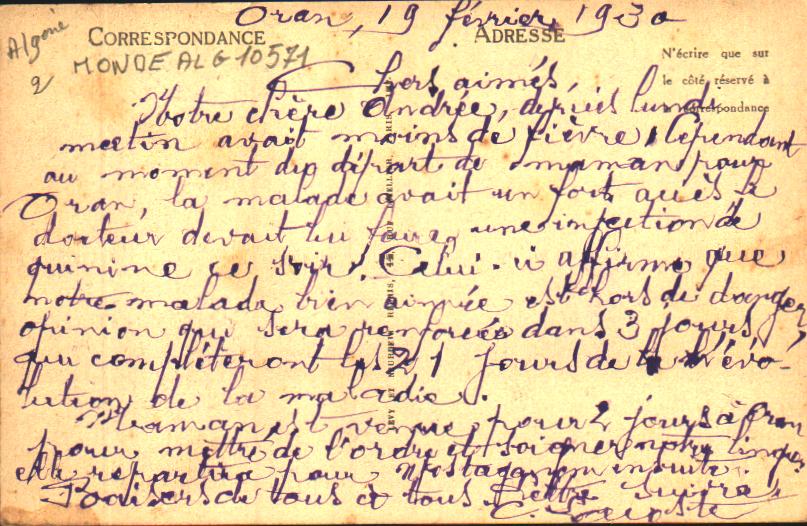 Oran, 19 février 1930
Algérie
CORRESPONDANCE
ADRESSE
MONDE ALG 10571
N'écrire que sur
le côté réservé à
la correspondance
Chers aimés,
Notre chère Andrée, depuis lundi
matin avait moins de fièvre. Cependant
au moment du départ de maman pour
Oran, la malade avait un fort accès le
docteur devait lui faire une injection de
quinine ce soir. Celui-ci affirme que
notre malade bien aimée est hors de danger
opinion qui sera renforcée dans 3 jours
qui compléteront les 21 jours de l'évo-
lution de la maladie.
Maman est venue pour 2 jours à Oran
pour mettre de l'ordre et soigner notre linge
elle repartira pour Mostaganem ensuite.
Baisers de tous à tous lettre suivra